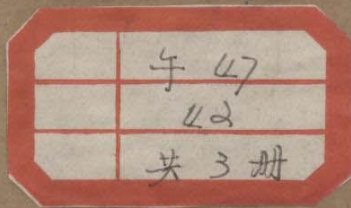 午 47
42
共 3 册